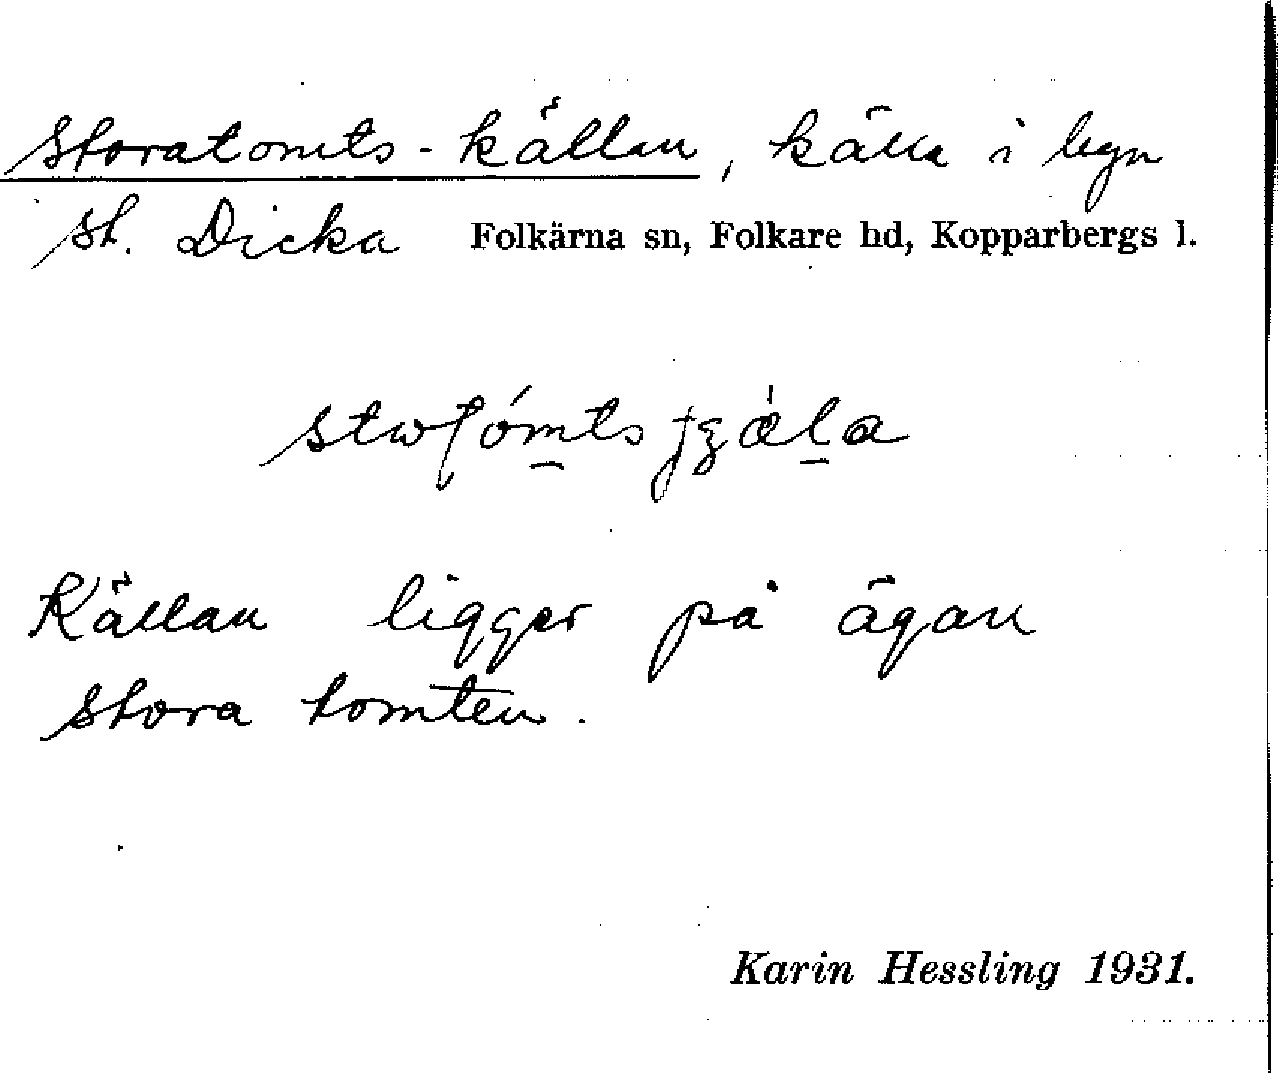 Storatomts-källan, källa i byn
St. Dicka Folkärna sn, Folkare hd, Kopparbergs l.
Källan ligger på ägan
Stora tomten.
Karin Hessling 1931.